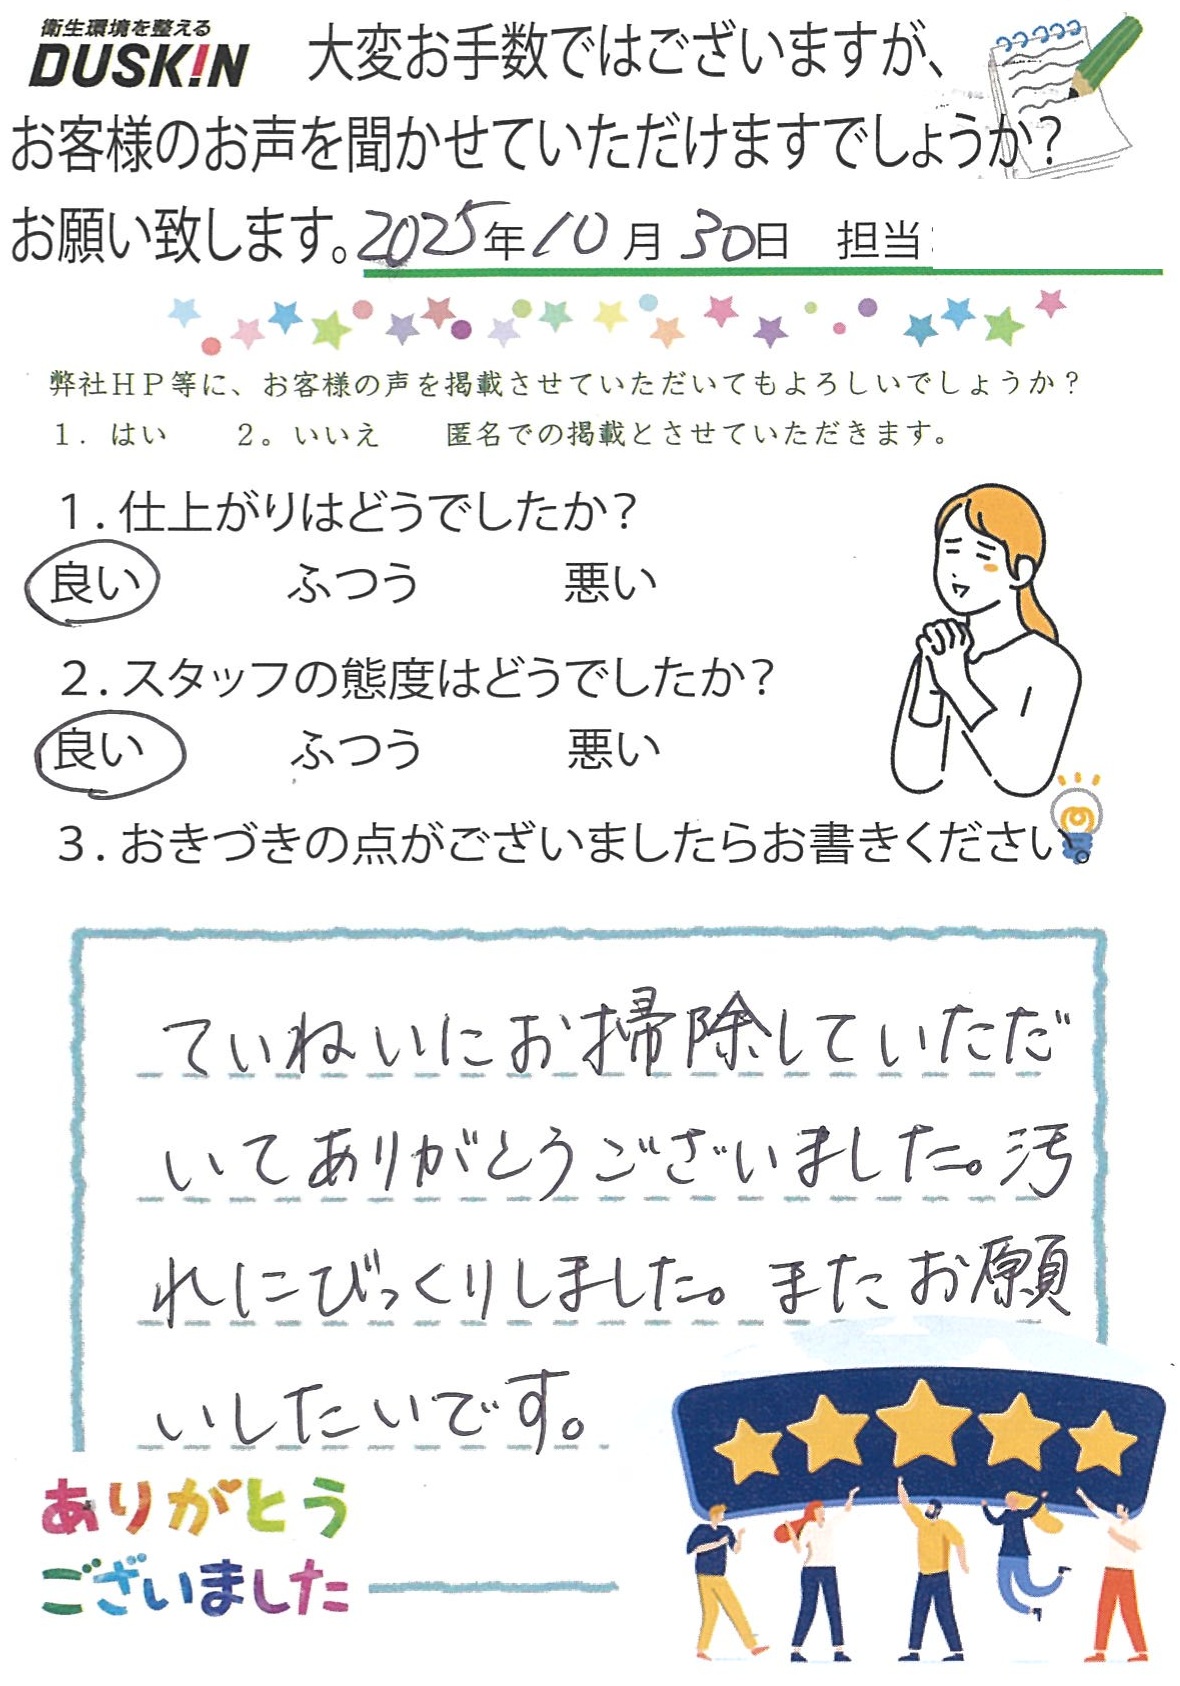 衛生環境を整える
DUSKIN 大変お手数ではございますが、
お客様のお声を聞かせていただけますでしょうか?
お願い致します。2025年10月30日 担当:
弊社HP等に、お客様の声を掲載させていただいてもよろしいでしょうか?
1. はい 2。いいえ 匿名での掲載とさせていただきます。
1. 仕上がりはどうでしたか?
良い ふつう 悪い
2. スタッフの態度はどうでしたか?
良い ふつう 悪い
3. おきづきの点がございましたらお書きください
ていねいにお掃除していただ
いてありがとうございました。汚
れにびっくりしました。またお願
いしたいです。
ありがとう
ございました